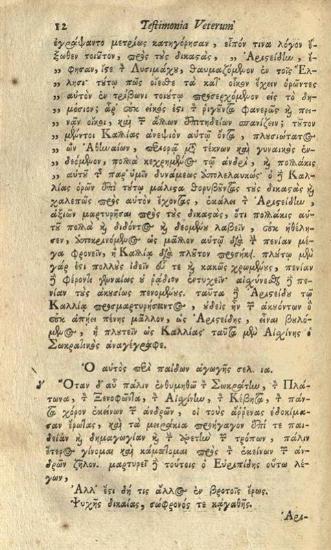 12 Testimonia Veterum
ἐγράψαντο μετρίως κατηγόρησαν, εἶπόν τινα λόγον ἔ-
„ ξωθεν τοιοῦτον, πρὸς τοὺς δικαστάς, „ Ἀριστείδην, ἔ-
„ φησαν, ἴστε τὸν Λυσιμάχου, θαυμαζόμενον ἐν τοῖς Ἕλ-
„ λησι· τούτῳ πῶς οἴεσθε τὰ κατ' οἶκον ἔχειν ὁρῶντες
„ αὐτὸν ἐν τρίβωνι τοιούτῳ προερχόμενον εἰς τὸ δη-
„ μόσιον; ἆρ' οὐκ εἰκός ἐστι τὸν ῥιγοῦντα φανερῶς καὶ πει-
„ νᾶν οἴκοι, καὶ τῶν ἄλλων ἐπιτηδείων σπανίζειν; τοῦτον
„ μέντοι Καλλίας ἀνεψιὸν αὐτῷ ὄντα, πλουσιώτατος
„ ὢν Ἀθηναίων, περιορᾷ μετὰ τέκνων καὶ γυναικὸς ἐν-
„ δεόμενον, πολλὰ κεχρημένος τῷ ἀνδρὶ, καὶ πολλάκις
„ αὐτοῦ τῆς παρ' ὑμῖν δυνάμεως ἀπολελαυκώς. ὁ δὲ Καλ-
λίας ὁρῶν ἐπὶ τούτῳ μάλιστα θορυβοῦντας τοὺς δικαστὰς καὶ
χαλεπῶς πρὸς αὐτὸν ἔχοντας, ἐκάλει τὸν Ἀριστείδην,
ἀξιῶν μαρτυρῆσαι πρὸς τοὺς δικαστὰς, ὅτι πολλάκις αὐ-
τοῦ πολλὰ καὶ διδόντος καὶ δεομένου λαβεῖν, οὐκ ἠθέλη-
σεν, ἀποκρινόμενος ὡς μᾶλλον αὐτῷ διὰ τὴν πενίαν μέ-
γα φρονεῖν, ἢ Καλλίᾳ διὰ πλοῦτον προσήκει. πλούτῳ μὲν
γάρ ἐστι πολλοὺς ἰδεῖν εὖ τε καὶ κακῶς χρωμένους, πενίαν
δὲ φέροντι γενναίως οὐ ῥᾴδιον ἐντυχεῖν· αἰσχύνεσθαι δὲ πε-
νίαν τοὺς ἀκουσίως πενομένους. ταῦτα δὲ Ἀριστείδου τῷ
Καλλίᾳ προσμαρτυρήσαντος, οὐδεὶς ἦν τῶν ἀκουόντων ὃς
οὐκ ἀπῄει πένης μᾶλλον, ὡς Ἀριστείδης, εἶναι βουλό-
μενος, ἢ πλουτεῖν ὡς Καλλίας· ταῦτα μὲν Αἰσχίνης ὁ
Σωκρατικὸς ἀναγέγραφε.
Ὁ αὐτὸς περὶ παίδων ἀγωγῆς σελ. ια.
Ὅταν δ' αὖ πάλιν ἐνθυμηθῶ τὸν Σωκράτην, τὸν Πλά-
τωνα, τὸν Ξενοφῶντα, τὸν Αἰσχίνην, τὸν Κέβητα, τὸν πάν-
τα χορὸν ἐκείνων τῶν ἀνδρῶν, οἳ τοὺς ἄρρενας ἐδοκίμα-
σαν ἔρωτας, καὶ τὰ μειράκια προήγαγον ἐπί τε παι-
δείαν καὶ δημαγωγίαν καὶ τὴν ἀρετὴν τῶν τρόπων, πάλιν
ἕτερος γίνομαι καὶ κάμπτομαι πρὸς τὸν ἐκείνων τῶν ἀν-
δρῶν ζῆλον. μαρτυρεῖ δὲ τούτοις ὁ Εὐριπίδης οὕτω λέ-
γων,
Ἀλλ' ἔστι δή τις ἄλλος ἐν βροτοῖς ἔρως.
Ψυχῆς δικαίας, σώφρονός τε κἀγαθῆς.
Ἀρι-